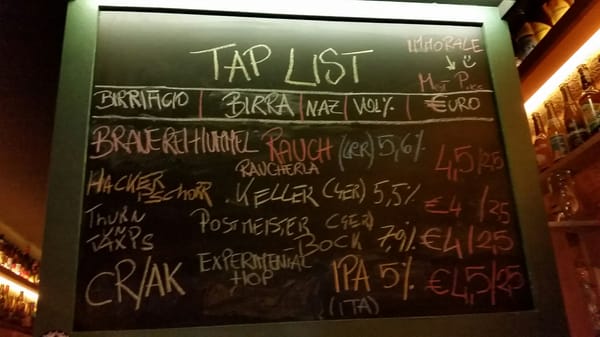 TAP LIST
IMMORALE
BIRRIFICIO BIRRA NAZ VOL% €URO
BRAUEREI-HUMMEL RAUCH (GER) 5,6% 4,5/25
RAUCHERLA
HACKER PSCHORR KELLER (GER) 5,5% €4/25
THURN UN TAXPS POSTMEISTER (GER) BOCK 7,9% €4/25
CR/AK EXPERIMENTAL HOP IPA 5% €4,5/25
(ITA)